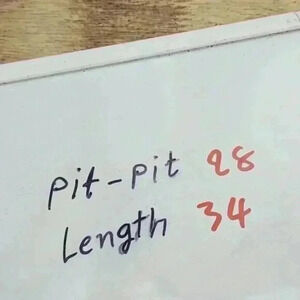 pit-pit 28
Length 34